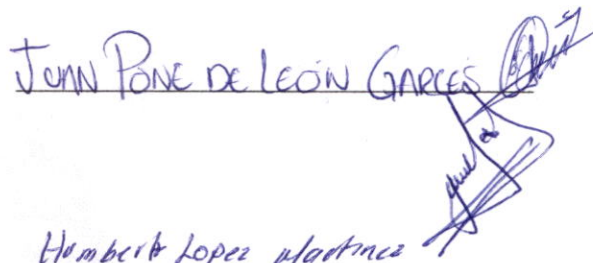 JUAN PONE DE LEÓN GARCES
Humberto Lopez Martinez